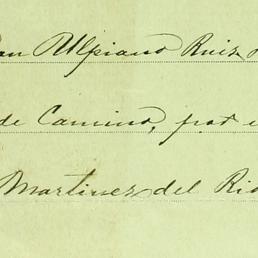 Don Ulpiano Ruiz
de Camino, por
Martinez del Rio